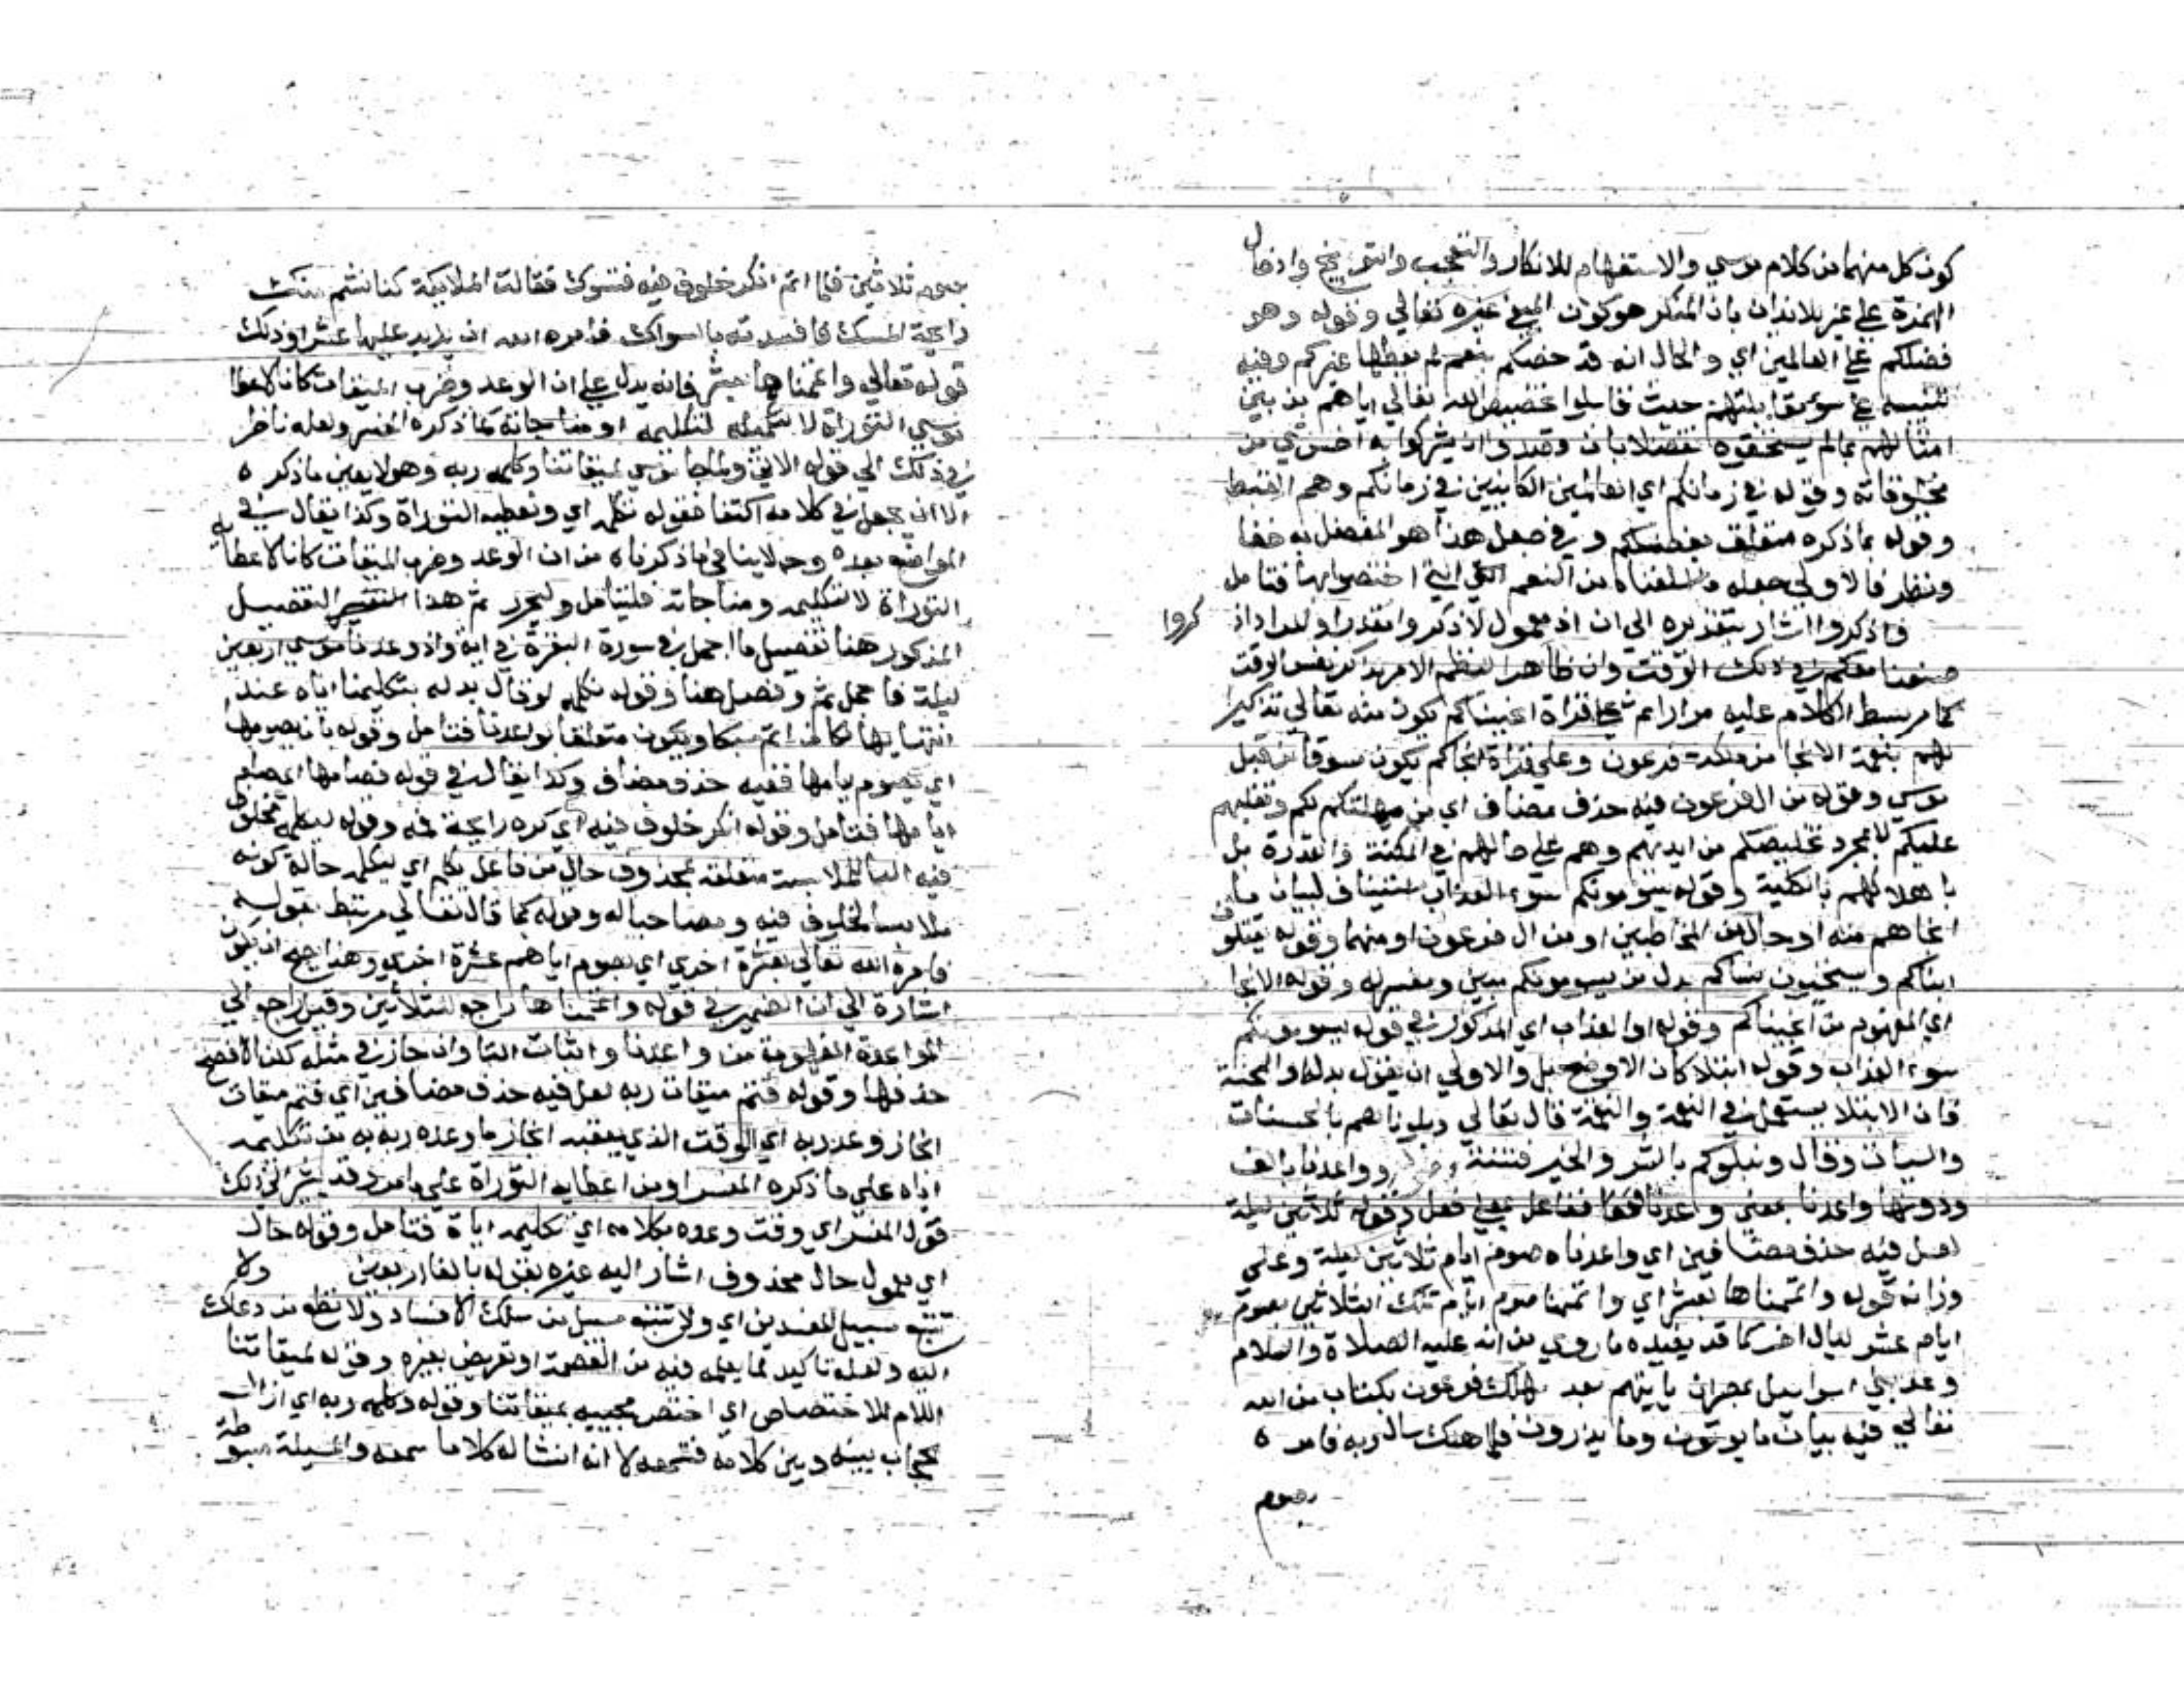 كون كل منهما من كلام موسي والاستفهام للانكار والتعجب والتوبيخ وادخال
الهمزة علي غير بلا نذان بان المنكر هو كون المبغي غيره تعالي وقوله وهو
فضلكم علي العالمين اي والحال انه قد خصكم بنعم لم يعطها غيركم وفيه
تنبيه علي سوء مقابلتهم حيث قابلوا تخصيص الله تعالي اياهم من بين
امثالهم بما لم يستحقوه تفضلا بان وقصدوا ان يشركوا به اخس شي من
مخلوقاته وقوله في زمانكم اي العالمين الكاينين في زمانكم وهم القبط
وقوله بما ذكره متعلق بفضلكم وفي جعل هذا هو المفضل به خفا
ونظر فالاولي جعله ما اسلفناه من النعم التي اختصوا بها فتامل
فاذكروا اشار بتقديره الي ان اذ معمول لاذكروا مقدرا والمراد اذكروا
صنعنا معكم في ذلك الوقت وان ظاهر النظم الامر بذكر نفس الوقت
كما مر بسط الكلام عليه مرارا ثم علي قراة انجيناكم يكون منه تعالي تذكيرا
لهم بنعمة الانجا من ملكة فرعون وعلي قراة انجاكم يكون مسوقا من قبل
موسي وقوله من ال فرعون فيه حذف مضاف اي من مهلكتكم وتغلبهم
عليكم لا بمجرد تخليصكم من ايديهم وهم علي حالهم في المكنة والقدرة بل
باهلاكهم بالكلية وقوله يسومونكم سوء العذاب استيناف لبيان ما
انجاهم منه او حال من المخاطبين او من ال فرعون او منهما وقوله يقتلون
ابناكم ويستحيون نساكم بدل من يسومونكم مبين ومفسر له وقوله الانجا
اي المفهوم من انجيناكم وقوله او العذاب اي المذكور في قوله يسومونكم
سوء العذاب وقوله ابتلا كان الاوضح بل والاولي ان يقول بدله او المحنة
فان الابتلا يستعمل في النعمة والنقمة قال تعالي وبلوناهم بالحسنات
والسيات وقال ونبلوكم بالشر والخير فتنة وواعدنا بالف
ودونها واعدنا بمعني واعدنا فقوله ففاعل بمعني فعل وقوله ثلاثين ليلة
لعل فيه حذف مضافين اي واعدناه صوم ايام ثلاثين ليلة وعلي
وزانه قوله واتممناها بعشر اي واتممنا صوم ايام تلك الثلاثين بصوم
ايام عشر ليال اخر كما قد يفيده ما روي من انه عليه الصلاة والسلام
وعد بني اسراييل بمصران ياتيهم بعد مهلك فرعون بكتاب من الله
تعالي فيه بيان ما ياتون وما يذرون فلما هلك سال ربه فامره
بصوم
بصوم ثلاثين فلما اتم انكر خلوف فيه فتسوك فقالت الملايكة كنا نشم منك
رايحة المسك فافسدته بالسواك فامره الله ان يزيد عليها عشرا وذلك
قوله تعالي واتممناها بعشر فانه يدل علي ان الوعد وضرب الميقات كانا لاعطا
موسي التوراة لا لتكليمه او مناجاته كما ذكره المفسر ولعله ناظر
في ذلك الي قوله الاتي ولما جا موسي لميقاتنا وكلمه ربه وهو لا يعين ما ذكره
الا ان يجعل في كلامه اكتفا فقوله نكلمه اي ونعطيه التوراة وكذا يقال في
المواضع بعده وح لا ينافي ما ذكرناه من ان الوعد وضرب الميقات كانا لاعطا
التوراة لا لتكليمه ومناجاته فليتامل وليحرر ثم هذا التفصيل
المذكور هنا تفصيل ما اجمل في سورة البقرة في اية واذ وعدنا موسي اربعين
ليلة فاجمل ثم وفصل هنا وقوله نكلمه لو قال بدله بتكليمنا اياه عند
انتهايها لكان اتم سبكا ويكون متعلقا بواعدنا فتامل وقوله بان يصومها
اي يصوم ايامها ففيه حذف مضاف وكذا يقال في قوله فصامها اي صام
ايامها فتامل وقوله انكر خلوف فيه اي كره رايحة فمه وقوله ليكلمه بخلوف
فيه البا للملابسة متعلقة بمحذوف حال من فاعل يكلم اي يكلمه حالة كونه
ملابسا لخلوف فيه ومصاحبا له وقوله كما قال تعالي مرتبط بقوله
فامره الله تعالي بعشرة اخري اي بصوم ايامهم عشرة اخري وهنا يصح ان يكون
اشارة الي ان الضمير في قوله واتممناها راجع للثلاثين وقيل راجع الي
المواعدة المفهومة من واعدنا واثبات التا وان جاز في مثله لكن الافصح
حذفها وقوله فتم ميقات ربه لعل فيه حذف مضافين اي فتم ميقات
انجاز وعد ربه اي الوقت الذي يعقبه انجاز ما وعده ربه به من تكليمه
اياه علي ما ذكره المفسر او من اعطايه التوراة علي ما مر وقد يشير الي ذلك
قول المفسر اي وقت وعده بكلامه اي تكليمه اياه فتامل وقوله حال
اي معمول حال محذوف اشار اليه غيره بقوله بالغا اربعين ولا
تتبع سبيل المفسدين اي ولا تتبع سبيل من سلك الافساد ولا تطع من دعاك
اليه ولعله تاكيد لما يعلمه فيه من العصمة او تعريض بغيره وقوله لميقاتنا
اللام للاختصاص اي اختص مجييه بميقاتنا وقوله وكلمه ربه اي ازال
حجاب بينه وبين كلامه فسمعه لا انه انشا له كلاما سمعه والمسيلة مبسوطة